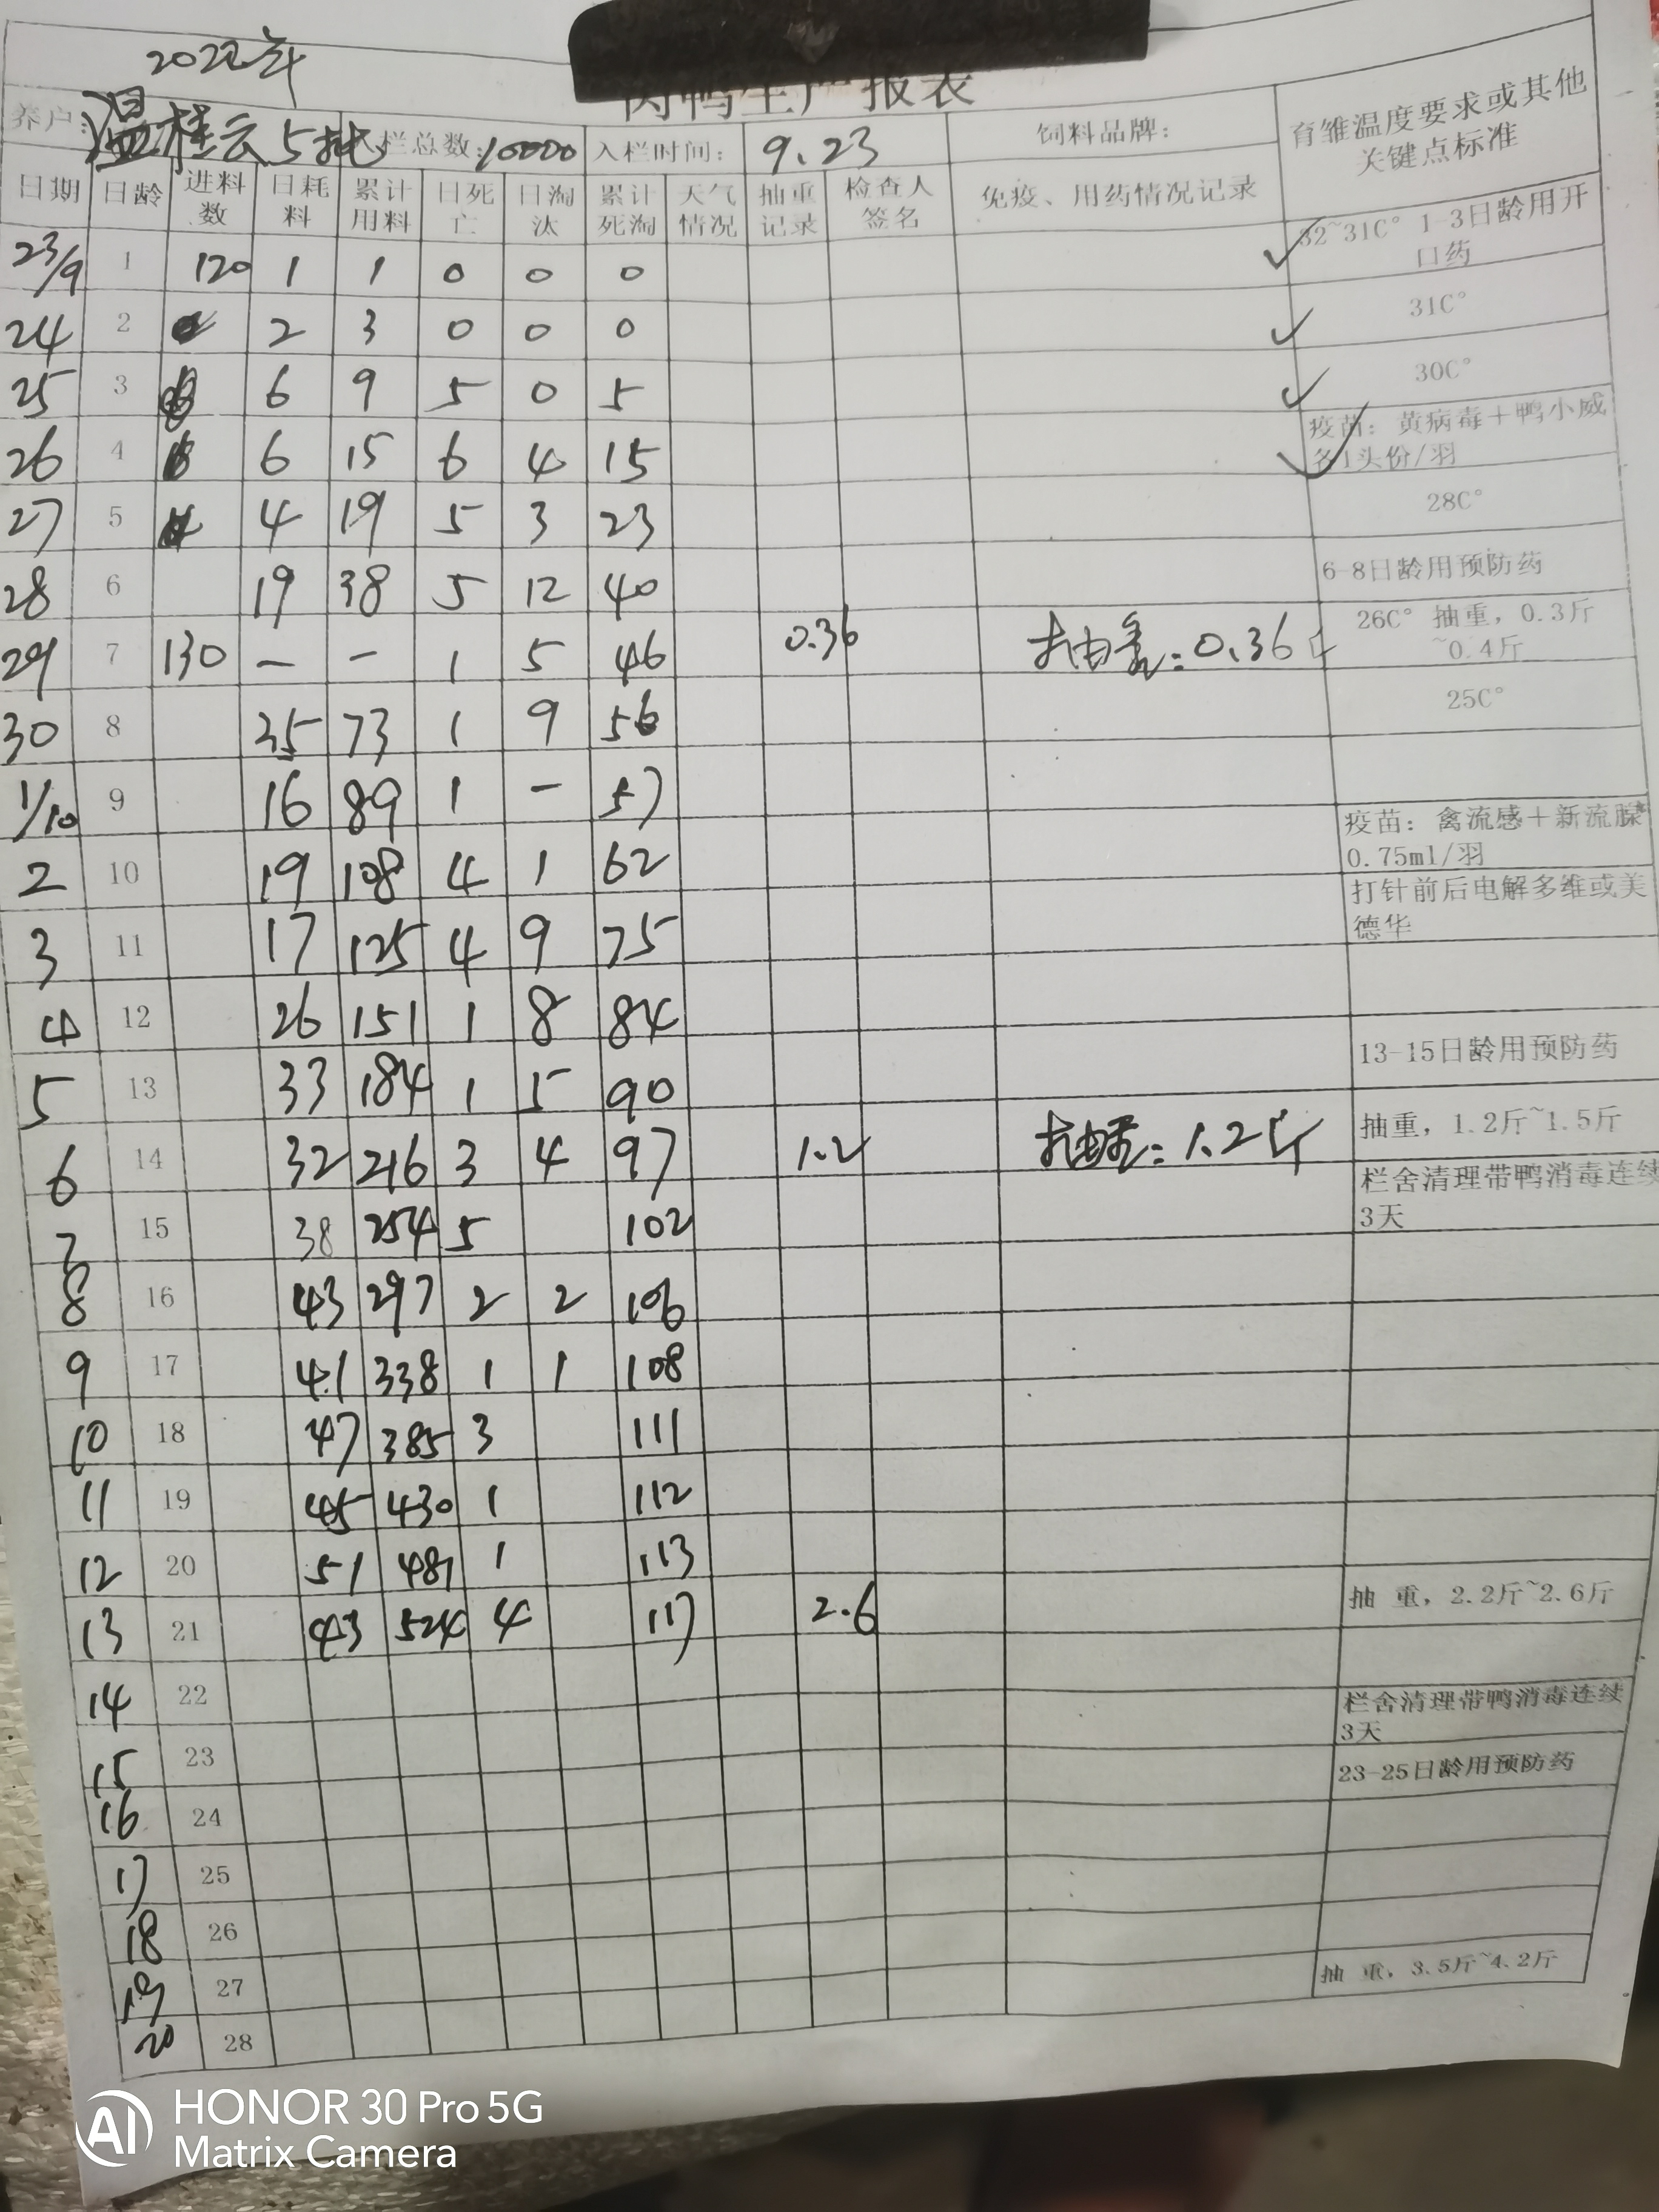 2022年
肉鸭生产报表
养户: 温桂云5批 入栏总数: 10000 入栏时间: 9.23 饲料品牌: 育雏温度要求或其他关键点标准
日期 日龄 进料数 日耗料 累计用料 日死亡 日淘汰 累计死淘 天气情况 抽重记录 检查人签名 免疫、用药情况记录
23/9 1 120 1 1 0 0 0 ✓ 32~31C° 1-3日龄用开口药
24 2 2 3 0 0 0 ✓ 31C°
25 3 6 9 5 0 5 ✓ 30C°
26 4 6 15 6 4 15 ✓ 疫苗: 黄病毒+鸭小威各1头份/羽
27 5 4 19 5 3 23 28C°
28 6 19 38 5 12 40 6-8日龄用预防药
29 7 130 — — 1 5 46 0.36 抽重: 0.36斤 26C° 抽重, 0.3斤~0.4斤
30 8 35 73 1 9 56 25C°
1/10 9 16 89 1 — 57
2 10 19 108 4 1 62 疫苗: 禽流感+新流腺0.75ml/羽
3 11 17 125 4 9 75 打针前后电解多维或美德华
4 12 26 151 1 8 84
5 13 33 184 1 5 90 13-15日龄用预防药
6 14 32 216 3 4 97 1.2 抽重: 1.2斤 抽重, 1.2斤~1.5斤
7 15 38 254 5 102 栏舍清理带鸭消毒连续3天
8 16 43 297 2 2 106
9 17 41 338 1 1 108
10 18 47 385 3 111
11 19 45 430 1 112
12 20 51 481 1 113
13 21 43 524 4 117 2.6 抽 重, 2.2斤~2.6斤
14 22 栏舍清理带鸭消毒连续3天
15 23 23-25日龄用预防药
16 24
17 25
18 26
19 27 抽 重, 3.5斤~4.2斤
20 28
AI HONOR 30 Pro 5G
Matrix Camera